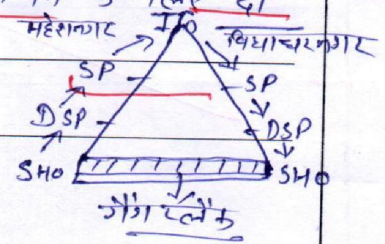 IG
महेशनगर विद्याधरनगर
SP SP
DSP DSP
SHO SHO
गैंग प्लैंक